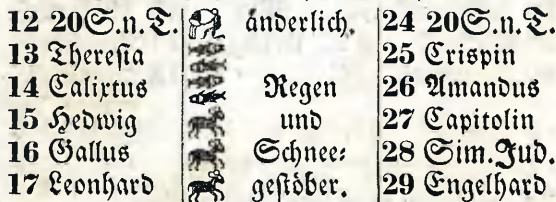 12 20S.n.T. änderlich. 24 20S.n.T.
13 Theresia 25 Crispin
14 Calixtus Regen 26 Amandus
15 Hedwig und 27 Capitolin
16 Gallus Schnee⸗ 28 Sim.Jud.
17 Leonhard gestöber. 29 Engelhard